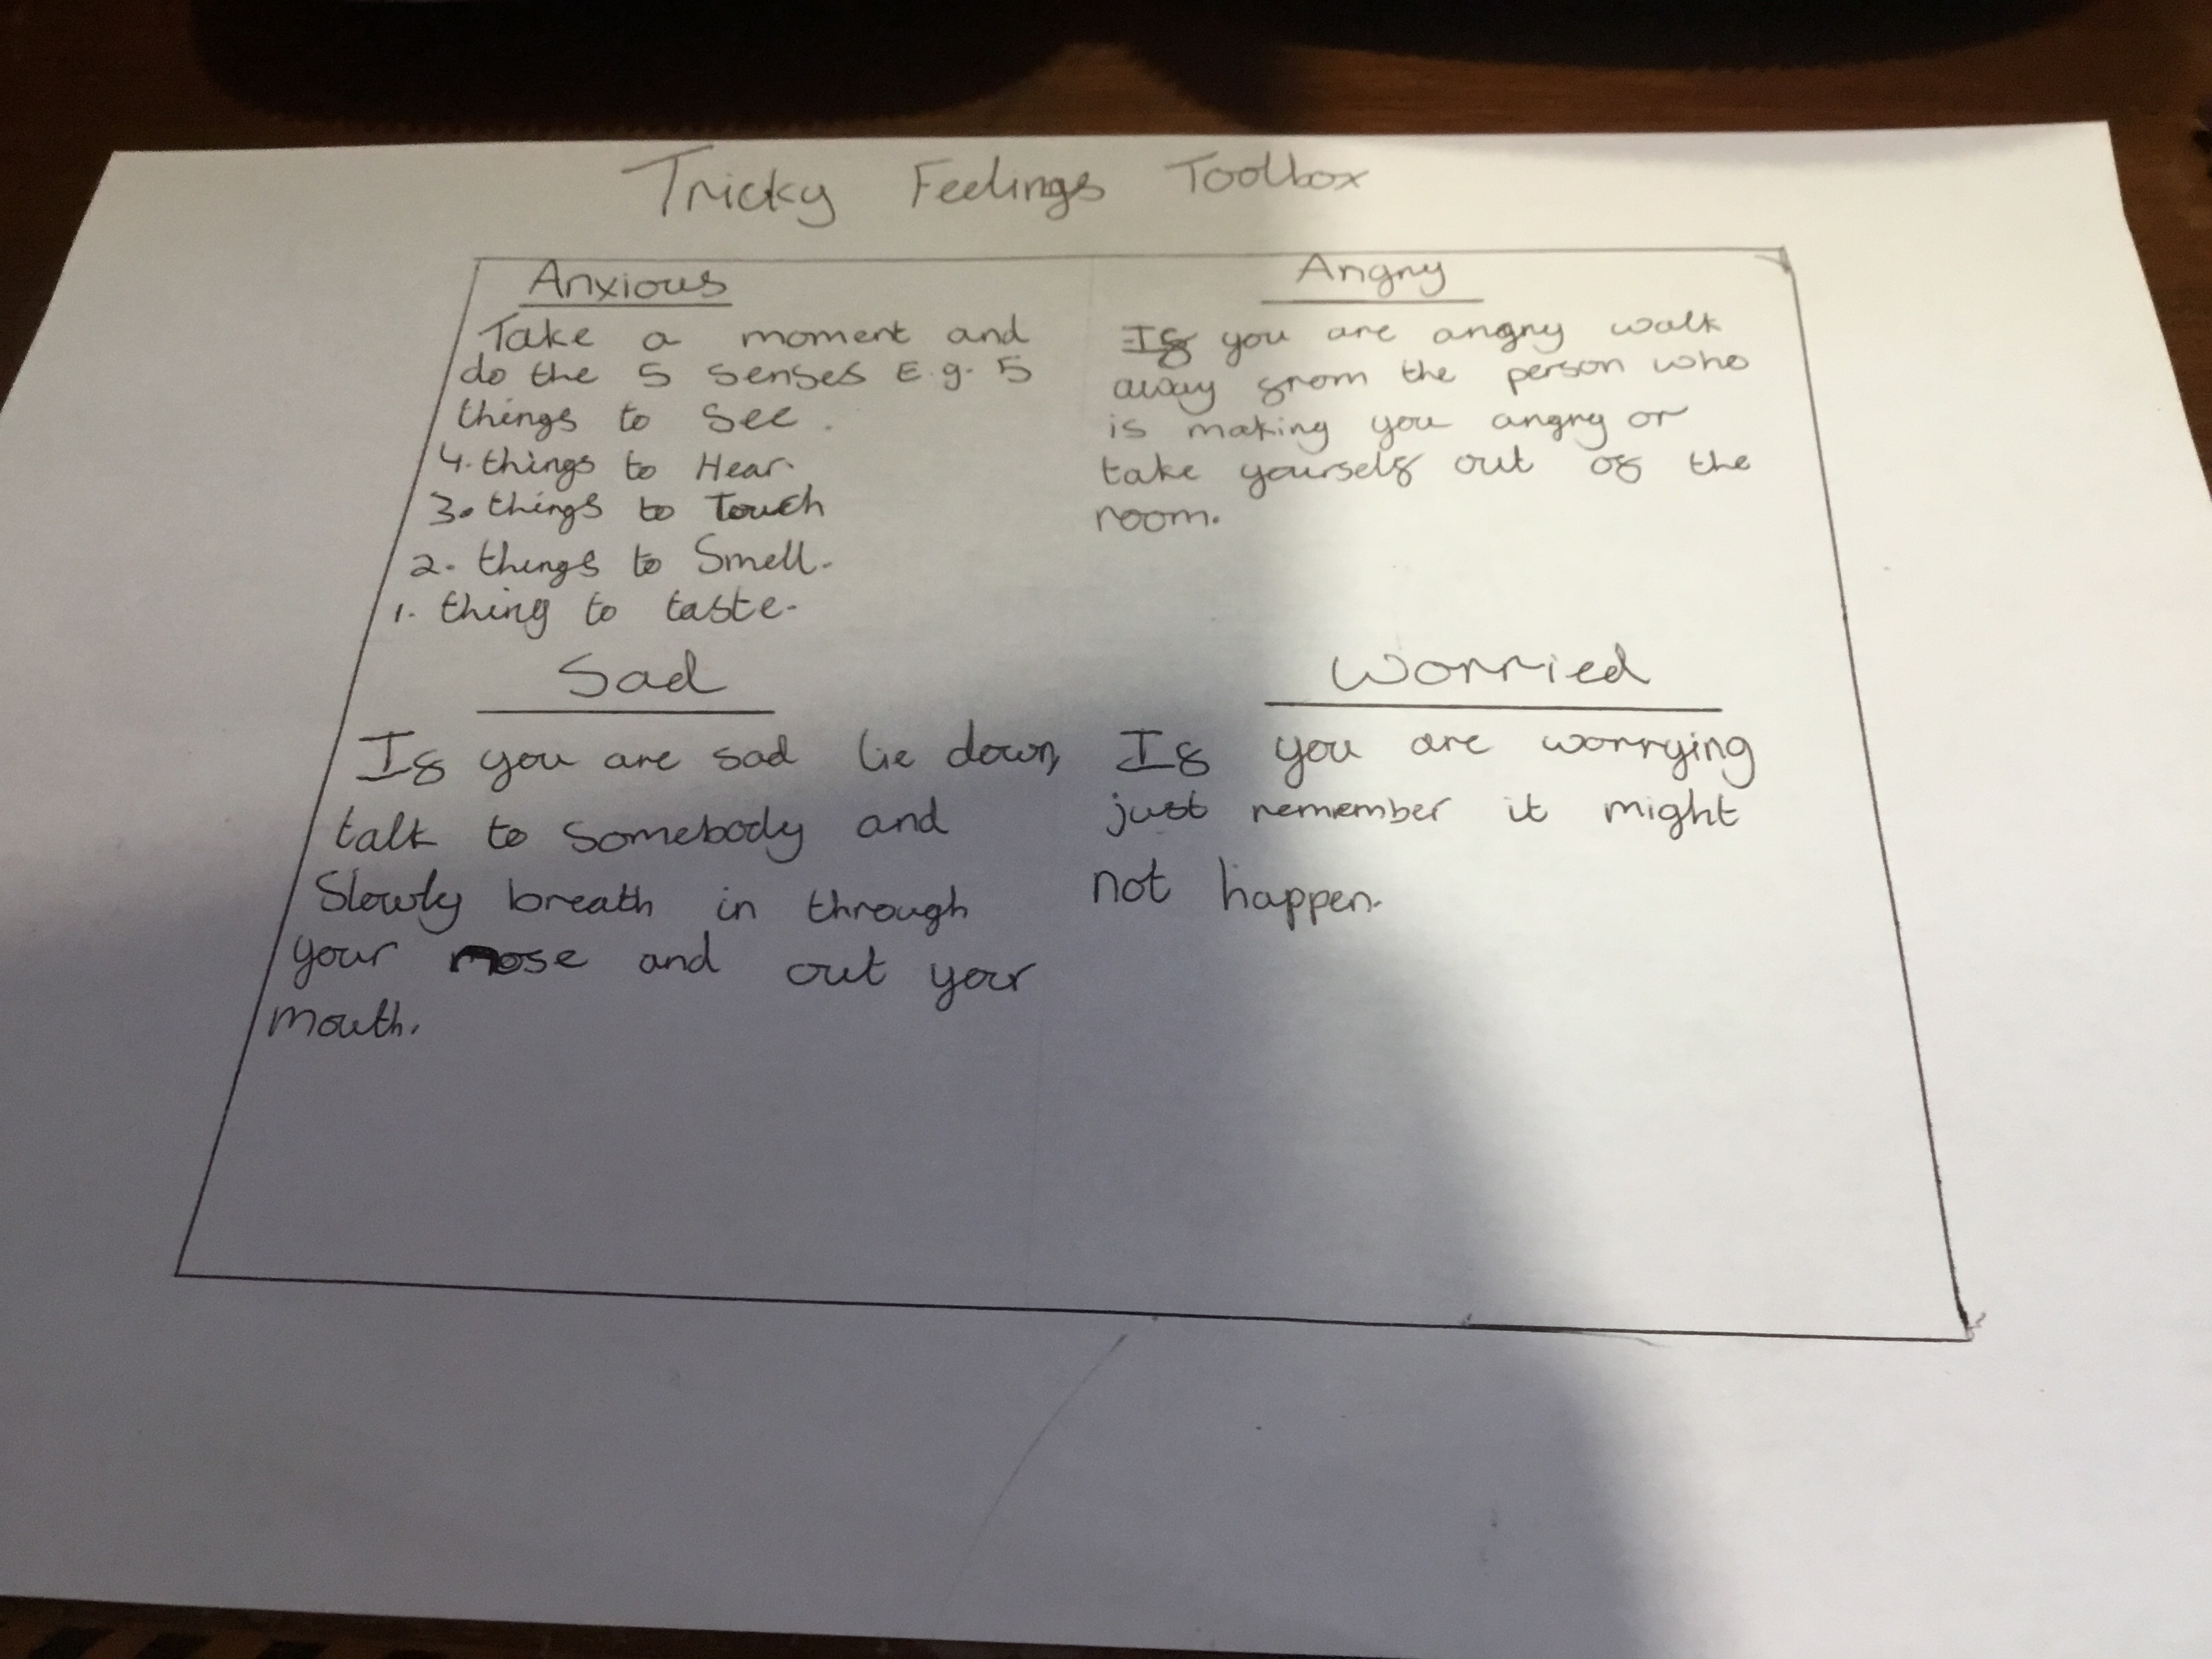 Tricky Feelings Toolbox
Anxious
Take a moment and
do the 5 senses E.g. 5
things to See.
4. things to Hear.
3. things to Touch
2. things to Smell.
1. thing to taste.
Angry
If you are angry walk
away from the person who
is making you angry or
take yourself out of the
room.
Sad
If you are sad lie down,
talk to somebody and
Slowly breath in through
your nose and out your
mouth.
Worried
If you are worrying
just remember it might
not happen.